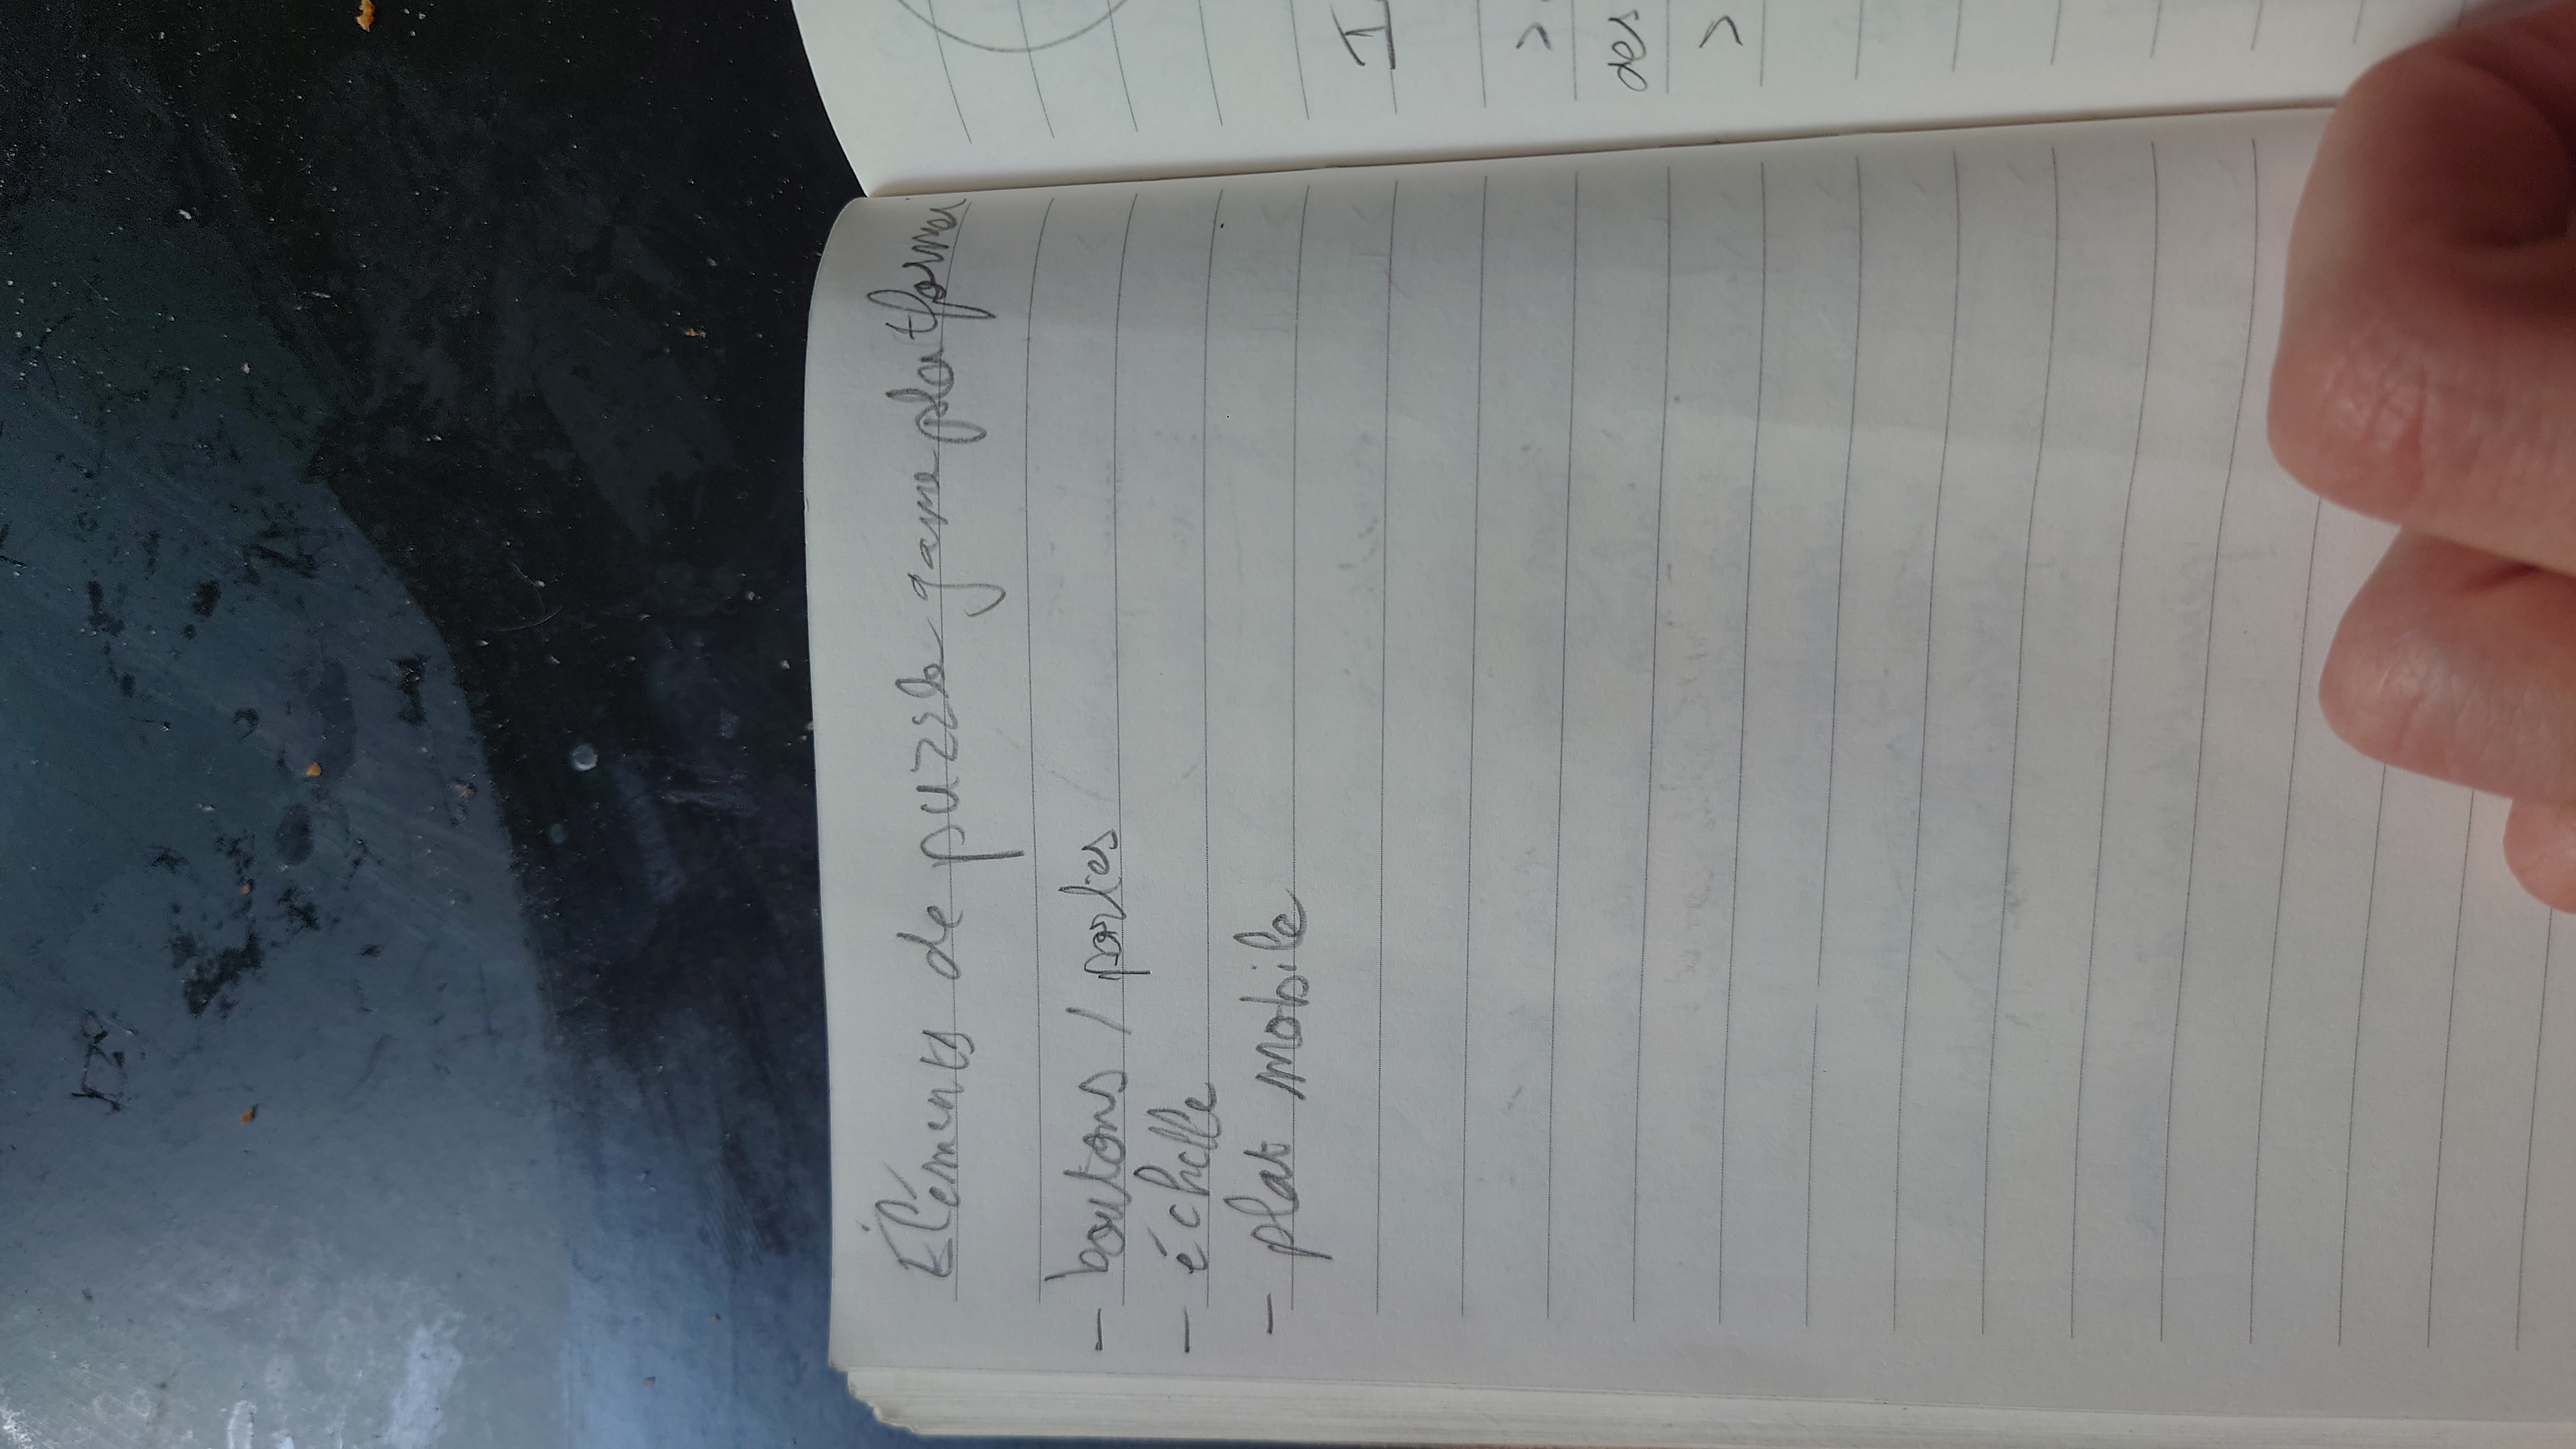 Éléments de puzzle game platformer
- boutons / portes
- échelle
- plat mobile
I
>
des
>